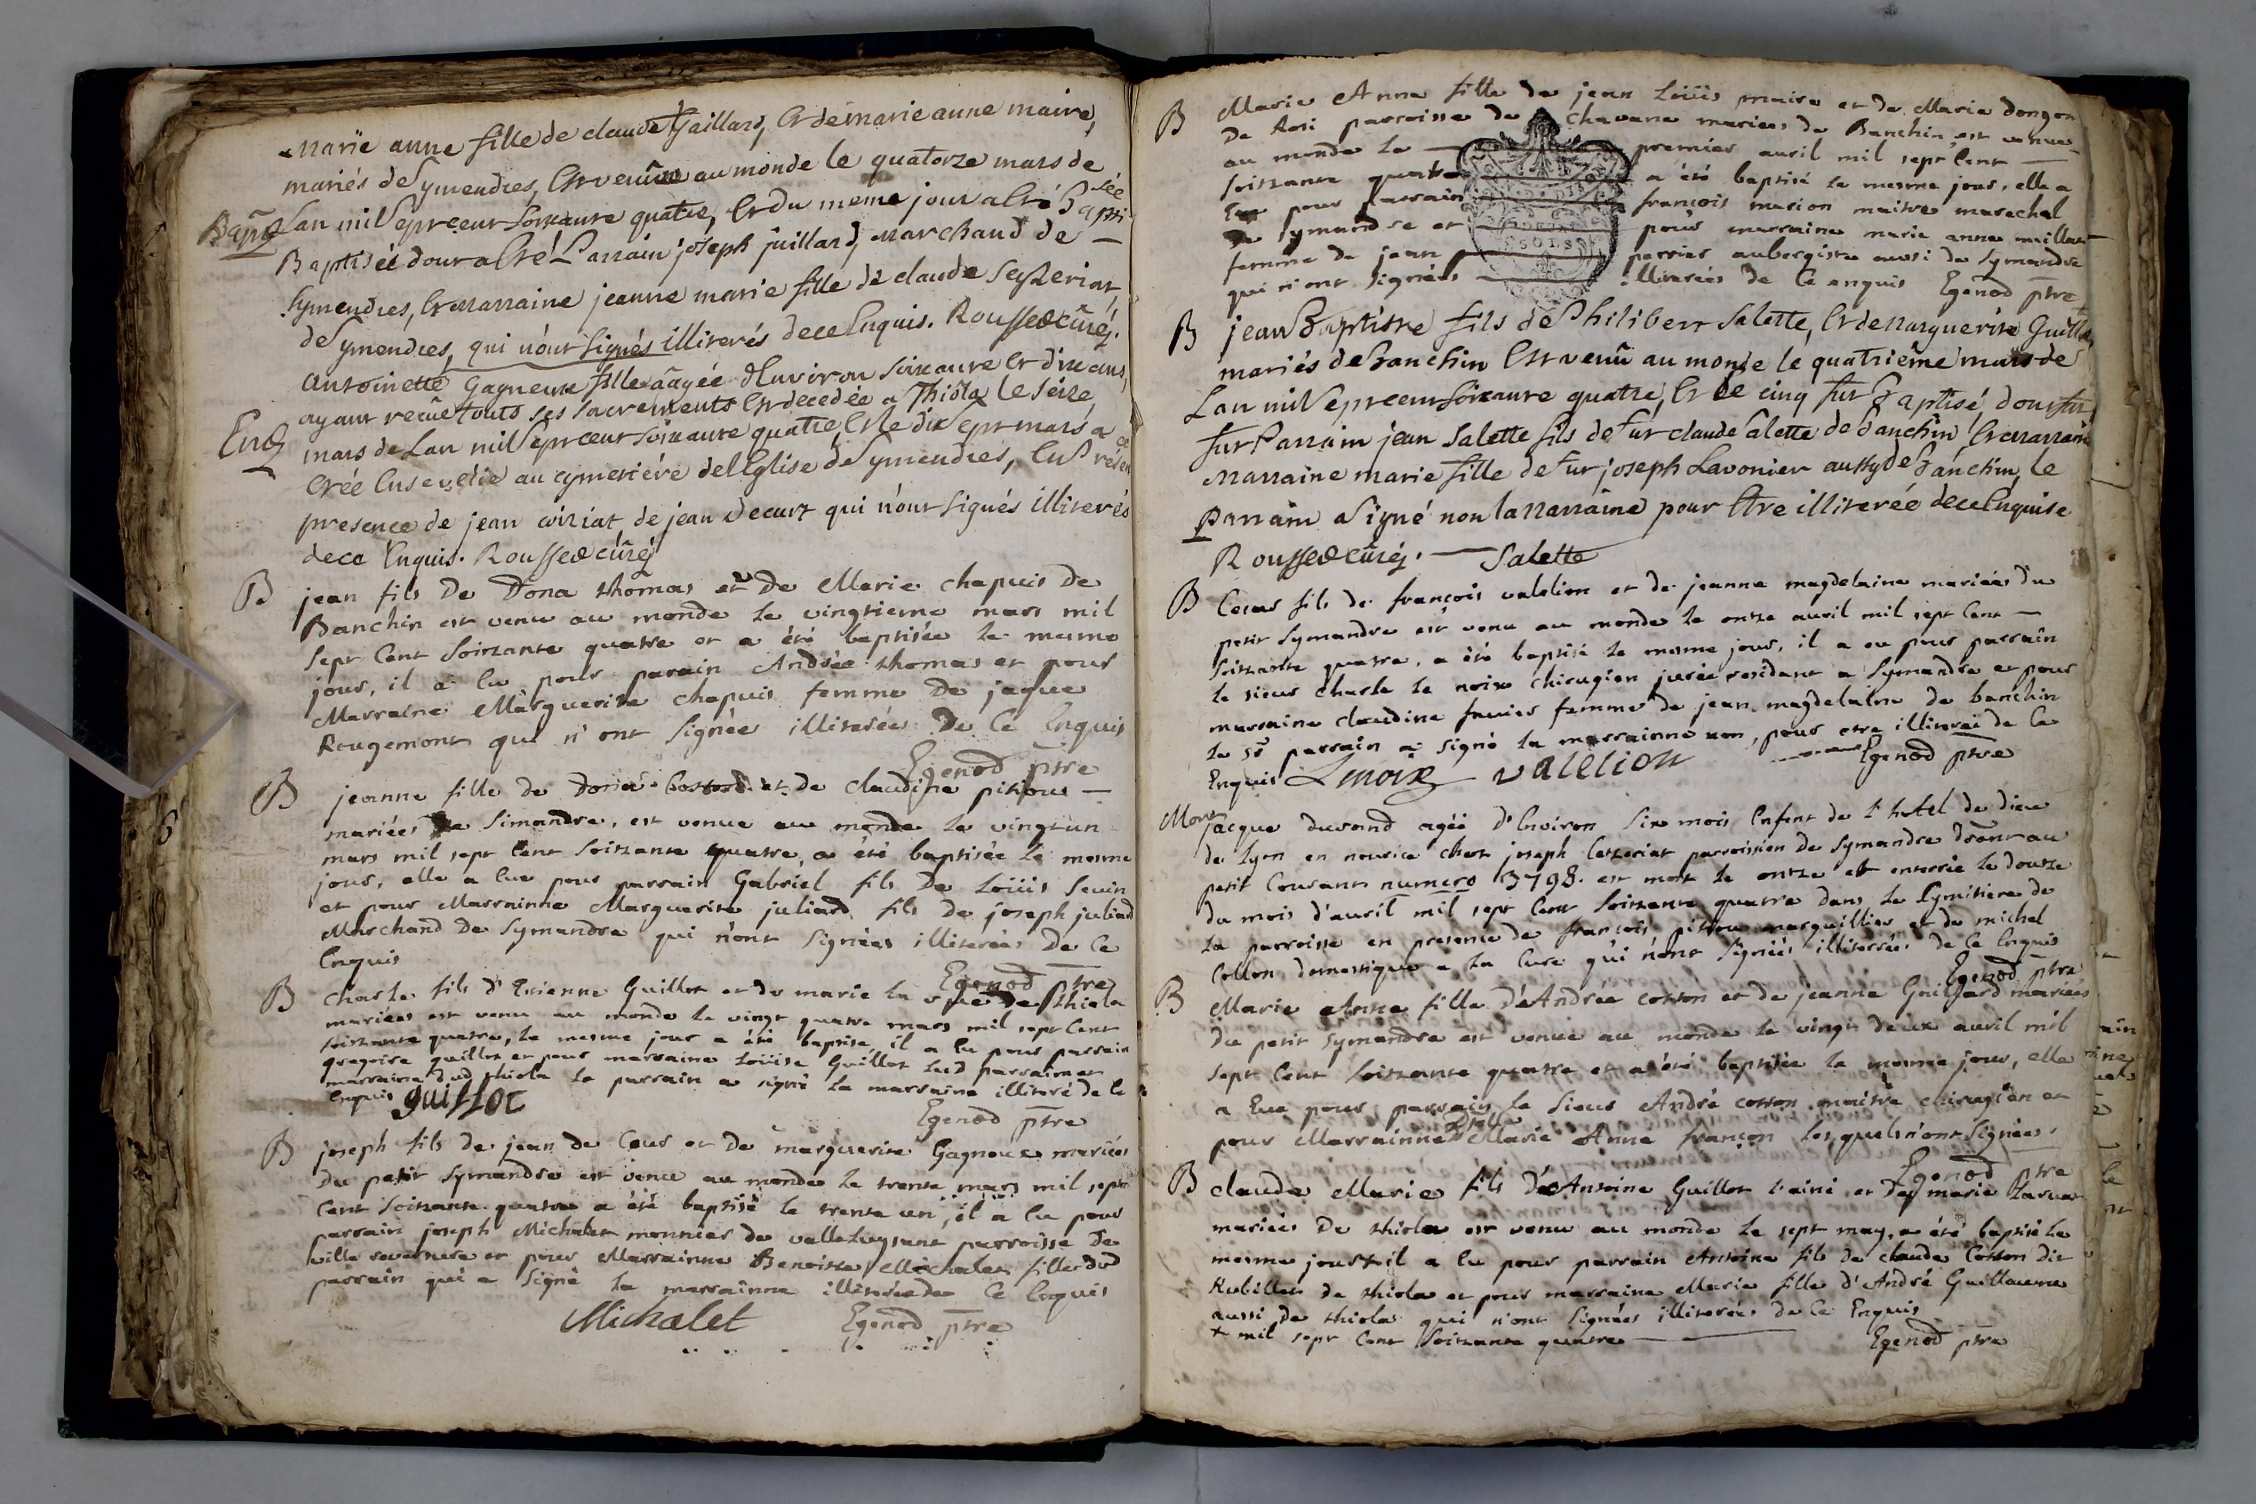 Marie anne fille de claude Gaillard, Et de marie anne maire,
mariés de Symendres, Est venûe au monde le quatorze mars de
Bapt Lan mil Sept cent Soixante quatre, Et du meme jour a Eté Bapti sée
Baptisée dont a Eté Parrain joseph juillard, Marchand de
Symendres, Et Marraine jeanne marie fille de claude Seyzeriat
de Symendres, qui n'ont Signés illiterés de ce Enquis. Rousset curé.
Antoinette Gagneux fille âagée d'Environ soixante Et dix ans,
ayant recüe touts ses sacrements Est decedée a Thiola le seize
Ent mars de Lan mil Sept cent soixante quatre, Et le dix Sept mars a
Etée Ensevelie au cymetiére de l'Eglise de Symendres, En
presence de jean coiziat, de jean decurt qui n'ont Signés illiterés
de ce Enquis. Rousset curé
B jean fils De Dona thomas et De Marie chapuis de
Banchin est venu au monde le vingtieme mars mil
sept Cent soixzante quatre et a été baptisée le mesme
jour, il a Eu pour parain Andrée thomas et pour
Marraine Marguerite chapuis femme De jaque
Rougemont qui n'ont signées illiterées De Ce Enquis
Egenod ptre
B jeanne fille de Doria et de claudine pitiou
mariées de Simandre, est venue au monde le vingt un
mars mil sept Cent soixzante quatre, a été baptisée le mesme
jour, elle a Eue pour parrain Gabriel fils De Loüis Sevin
et pour Marrainne Marguerite juliard fils de joseph juliard
Marchand De Symandre qui n'ont signées illiterées De Ce
Enquis
Egenod ptre
B Charle fils d'Etienne Guillot et de marie la de thiola
mariées est venu au monde le vingt quatre mars mil sept Cent
soixzante quatre, le mesme jour a été baptisé il a Eu pour parrain
gregoire guillot et pour marraine Loüise Guillot led parrain et
marraine dud thiola le parrain a signé la marraine illiteré de ce
Enquis guillot
Egenod ptre
B joseph fils de jean de Cour et De marguerite Gagneux mariées
Du petit Symandre est venu au monde le trente mars mil sept
Cent soixzante quatre a été baptisé le trente un, il a Eu pour
parrain joseph Michalet monnier de valleluysant parroisse de
ville reversure et pour Marrainne Benoite Michalet fille dud
parrain qui a signé la marrainne illiterée de Ce Enquis
Michalet Egenod ptre
B Marie Anne fille de jean Loüis maire et de Marie dongon
De Rosi parroisse de Chavane mariees de Banchin est venue
au monde le premier avril mil sept Cent
soixzante quatre a été baptisé le mesme jour, elle a
Eue pour parrain françois marion maitre marechal
de symandre et pour marraine marie anne maillet
femme de jean perrier aubergiste aussi de Symandre
qui n'ont signées illiterées de Ce enquis Egenod ptre
B jean Baptiste fils de Philibert Salette, Et de Marguerite Guillot,
mariés de Banchin Est venû au monde le quatriême mars de
Lan mil Sept cent Soixante quatre, Et le cinq fut Baptisé, dont fut
fut Parrain jean Salette fils de fut claude Salette de Banchin, Et Marraine
Marraine marie fille de fut joseph Lavonier aussy de Banchin, le
Parrain a Signé non la Marraine pour Etre illiterée de ce Enquise
Rousset curé. Salette
B Cesar fils de françois valelion et de jeanne magdelaine mariées du
petit symandre est venu au monde le ontze avril mil sept Cent
soixzante quatre, a été baptisé le mesme jour, il a eu pour parrain
le sieur charle le noir chirugien jurée residant a symandre et pour
marraine claudine favier femme de jean magdelaine de banchin
le sr parrain a signé la marrainne non, pour etre illiteree de Ce
Enquis Lenoir valelion Egenod ptre
Mort jacque durand agée d'Environ six mois Enfent de l'hotel de dieu
de lyon en nourice chez joseph Cetzeriat parroissien de Symandre Dront au
petit Courant numero 3798. est mort le ontze et enterrée le doutze
du mois d'avril mil sept Cent soixzante quatre dans le Cymitiere de
la parroisse en presence de françois pitiou marguillier et de michel
Collon domestique a la Cure qui n'ont signés illiterées de Ce Enquis
Egenod ptre
B Marie Anne fille d'Andrée cotton et de jeanne Guillard mariées
du petit symandre est venue au monde le vingt deux avril mil
sept Cent soixzante quatre et a été baptisée le mesme jour, elle
a Eue pour parrain le sieur André cotton maitre chirugien et
pour Marrainne Delle Marie Anne françon les quels n'ont signées
Egenod ptre
B claude Marie fils d'Antoine Guillot l'ainé et de marie
mariées De thiola est venu au monde le sept may, a été baptisé le
mesme jour + il a Eu pour parrain Antoine fils de claude Cotton dit
Rubillet de thiola et pour marraine Marie fille d'André Guillaume
aussi de thiola qui n'ont signées illiterées de Ce Enquis
+ mil sept Cent soixzante quatre Egenod ptre